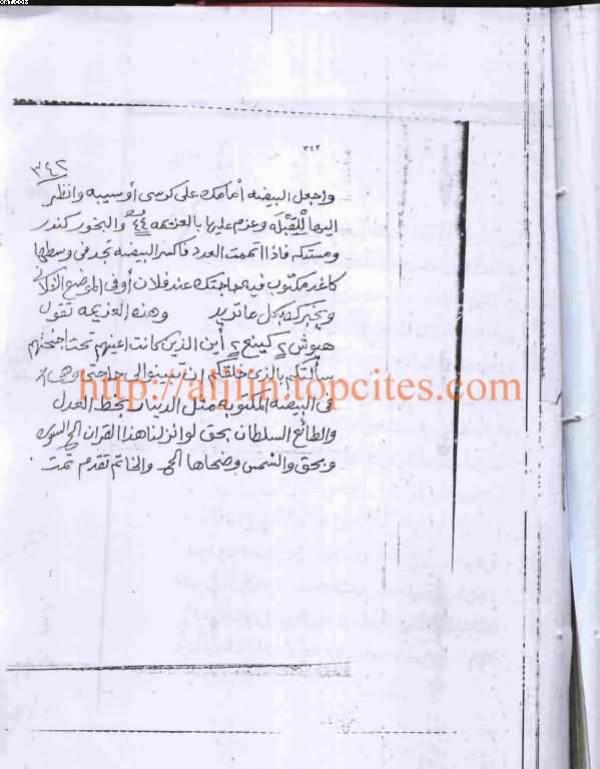 ٣٤٢
٣٤٢
واجعل البيضه أمامك على كرسى أو سيبه وانظر
اليها للقبله وعزم عليها بالعزيمه ٤٤ والبخور كندر
ومستكه فاذا اتممت العدد فاكسر البيضه تجد فى وسطها
كاغد مكتوب فيه حاجتك عند فلان أو فى الموضع الفلانى
ويخبرك بكل ما تريد وهذه العزيمه تقول
هيوش ٢ كينع ٢ أين الذين كانت اعينهم تحت اجنحتهم
سألتكم بالذى خلقكم ان تبينوا لى حاجتى
http://aljin.topcites.com
فى البيضه المكتوبه مثل الدينار بخط العدل
والطائع السلطان بحق لو انزلنا هذا القران الخ السوره
وبحق والشمس وضحاها الخ والخاتم تقدم تمت